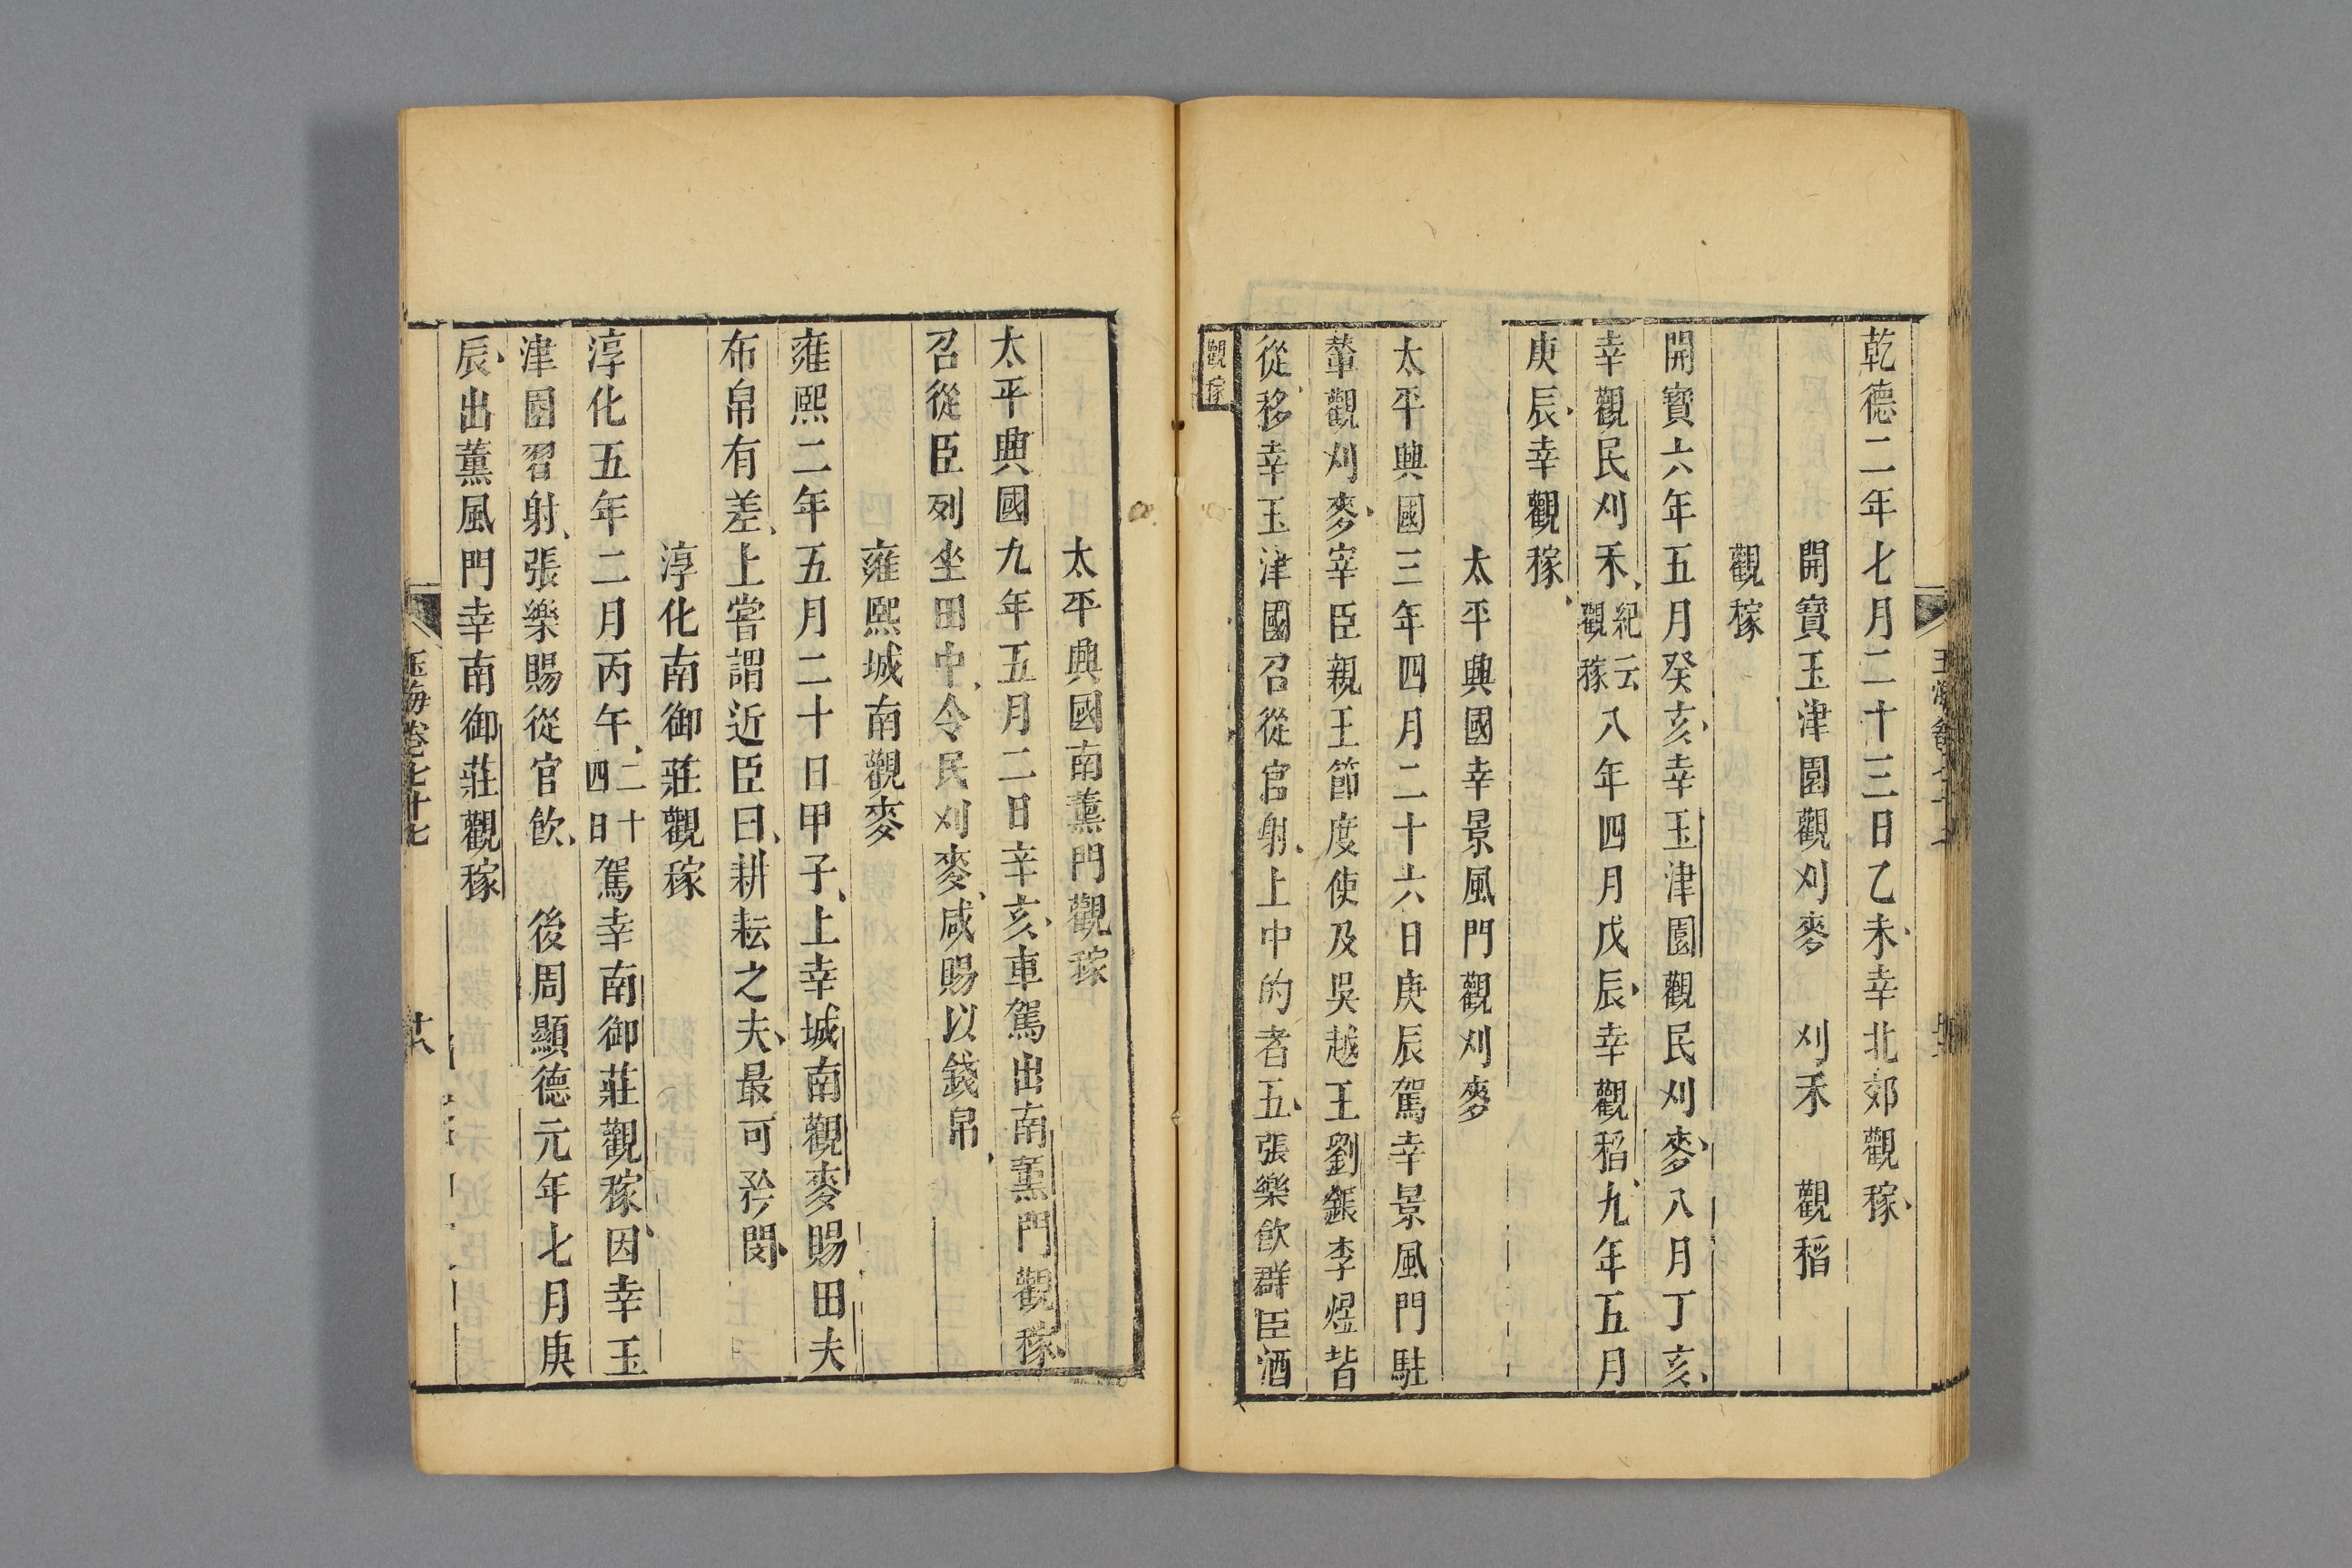 乾德二年七月二十三日乙未幸北郊觀稼
開寶玉津園觀刈麥 刈禾 觀稻
觀稼
開寶六年五月癸亥幸玉津園觀民刈麥八月丁亥
幸觀民刈禾紀云觀稼八年四月戊辰幸觀稻九年五月
庚辰幸觀稼
太平興國幸景風門觀刈麥
太平興國三年四月二十六日庚辰駕幸景風門駐
輦觀刈麥宰臣親王節度使及吳越王劉鋹李煜皆
從移幸玉津國召從官射上中的者五張樂飲群臣酒
觀稼
太平興國南薰門觀稼
太平興國九年五月二日辛亥車駕出南薰門觀稼
召從臣列坐田中令民刈麥咸賜以錢帛
雍熙城南觀麥
雍熙二年五月二十日甲子上幸城南觀麥賜田夫
布帛有差上嘗謂近臣曰耕耘之夫最可矜閔
淳化南御莊觀稼
淳化五年二月丙午二十四日駕幸南御莊觀稼因幸玉
津園習射張樂賜從官飲 後周顯德元年七月庚
辰出薰風門幸南御莊觀稼
玉海卷七十七